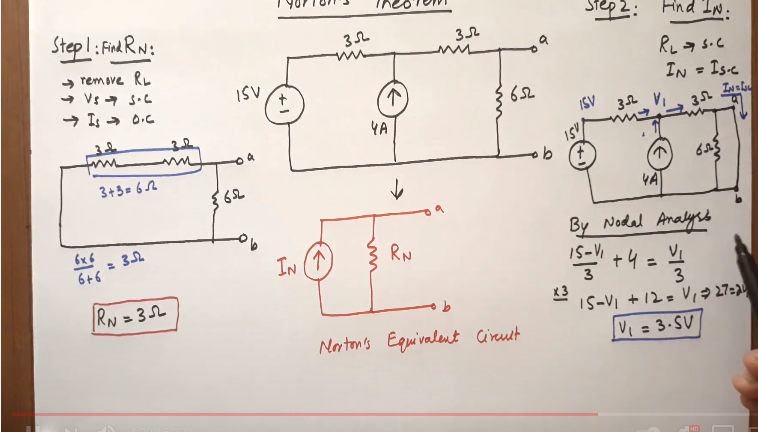 Norton's Theorem
Step 1: Find RN:
→ remove RL
→ Vs → s.c
→ Is → o.c
3Ω 3Ω
a
3+3=6Ω
6Ω
b
6×6/6+6 = 3Ω
RN = 3Ω
3Ω 3Ω
a
15V
+
−
4A
6Ω
b
a
IN
RN
b
Norton's Equivalent Circuit
Step 2: Find IN:
RL → s.c
IN = Is.c
IN=Isc
15V 3Ω V1 3Ω a
15V
+
−
4A
6Ω
b
By Nodal Analysis
15-V1/3 + 4 = V1/3
×3 15-V1 + 12 = V1 ⇒ 27=2V
V1 = 3.5V